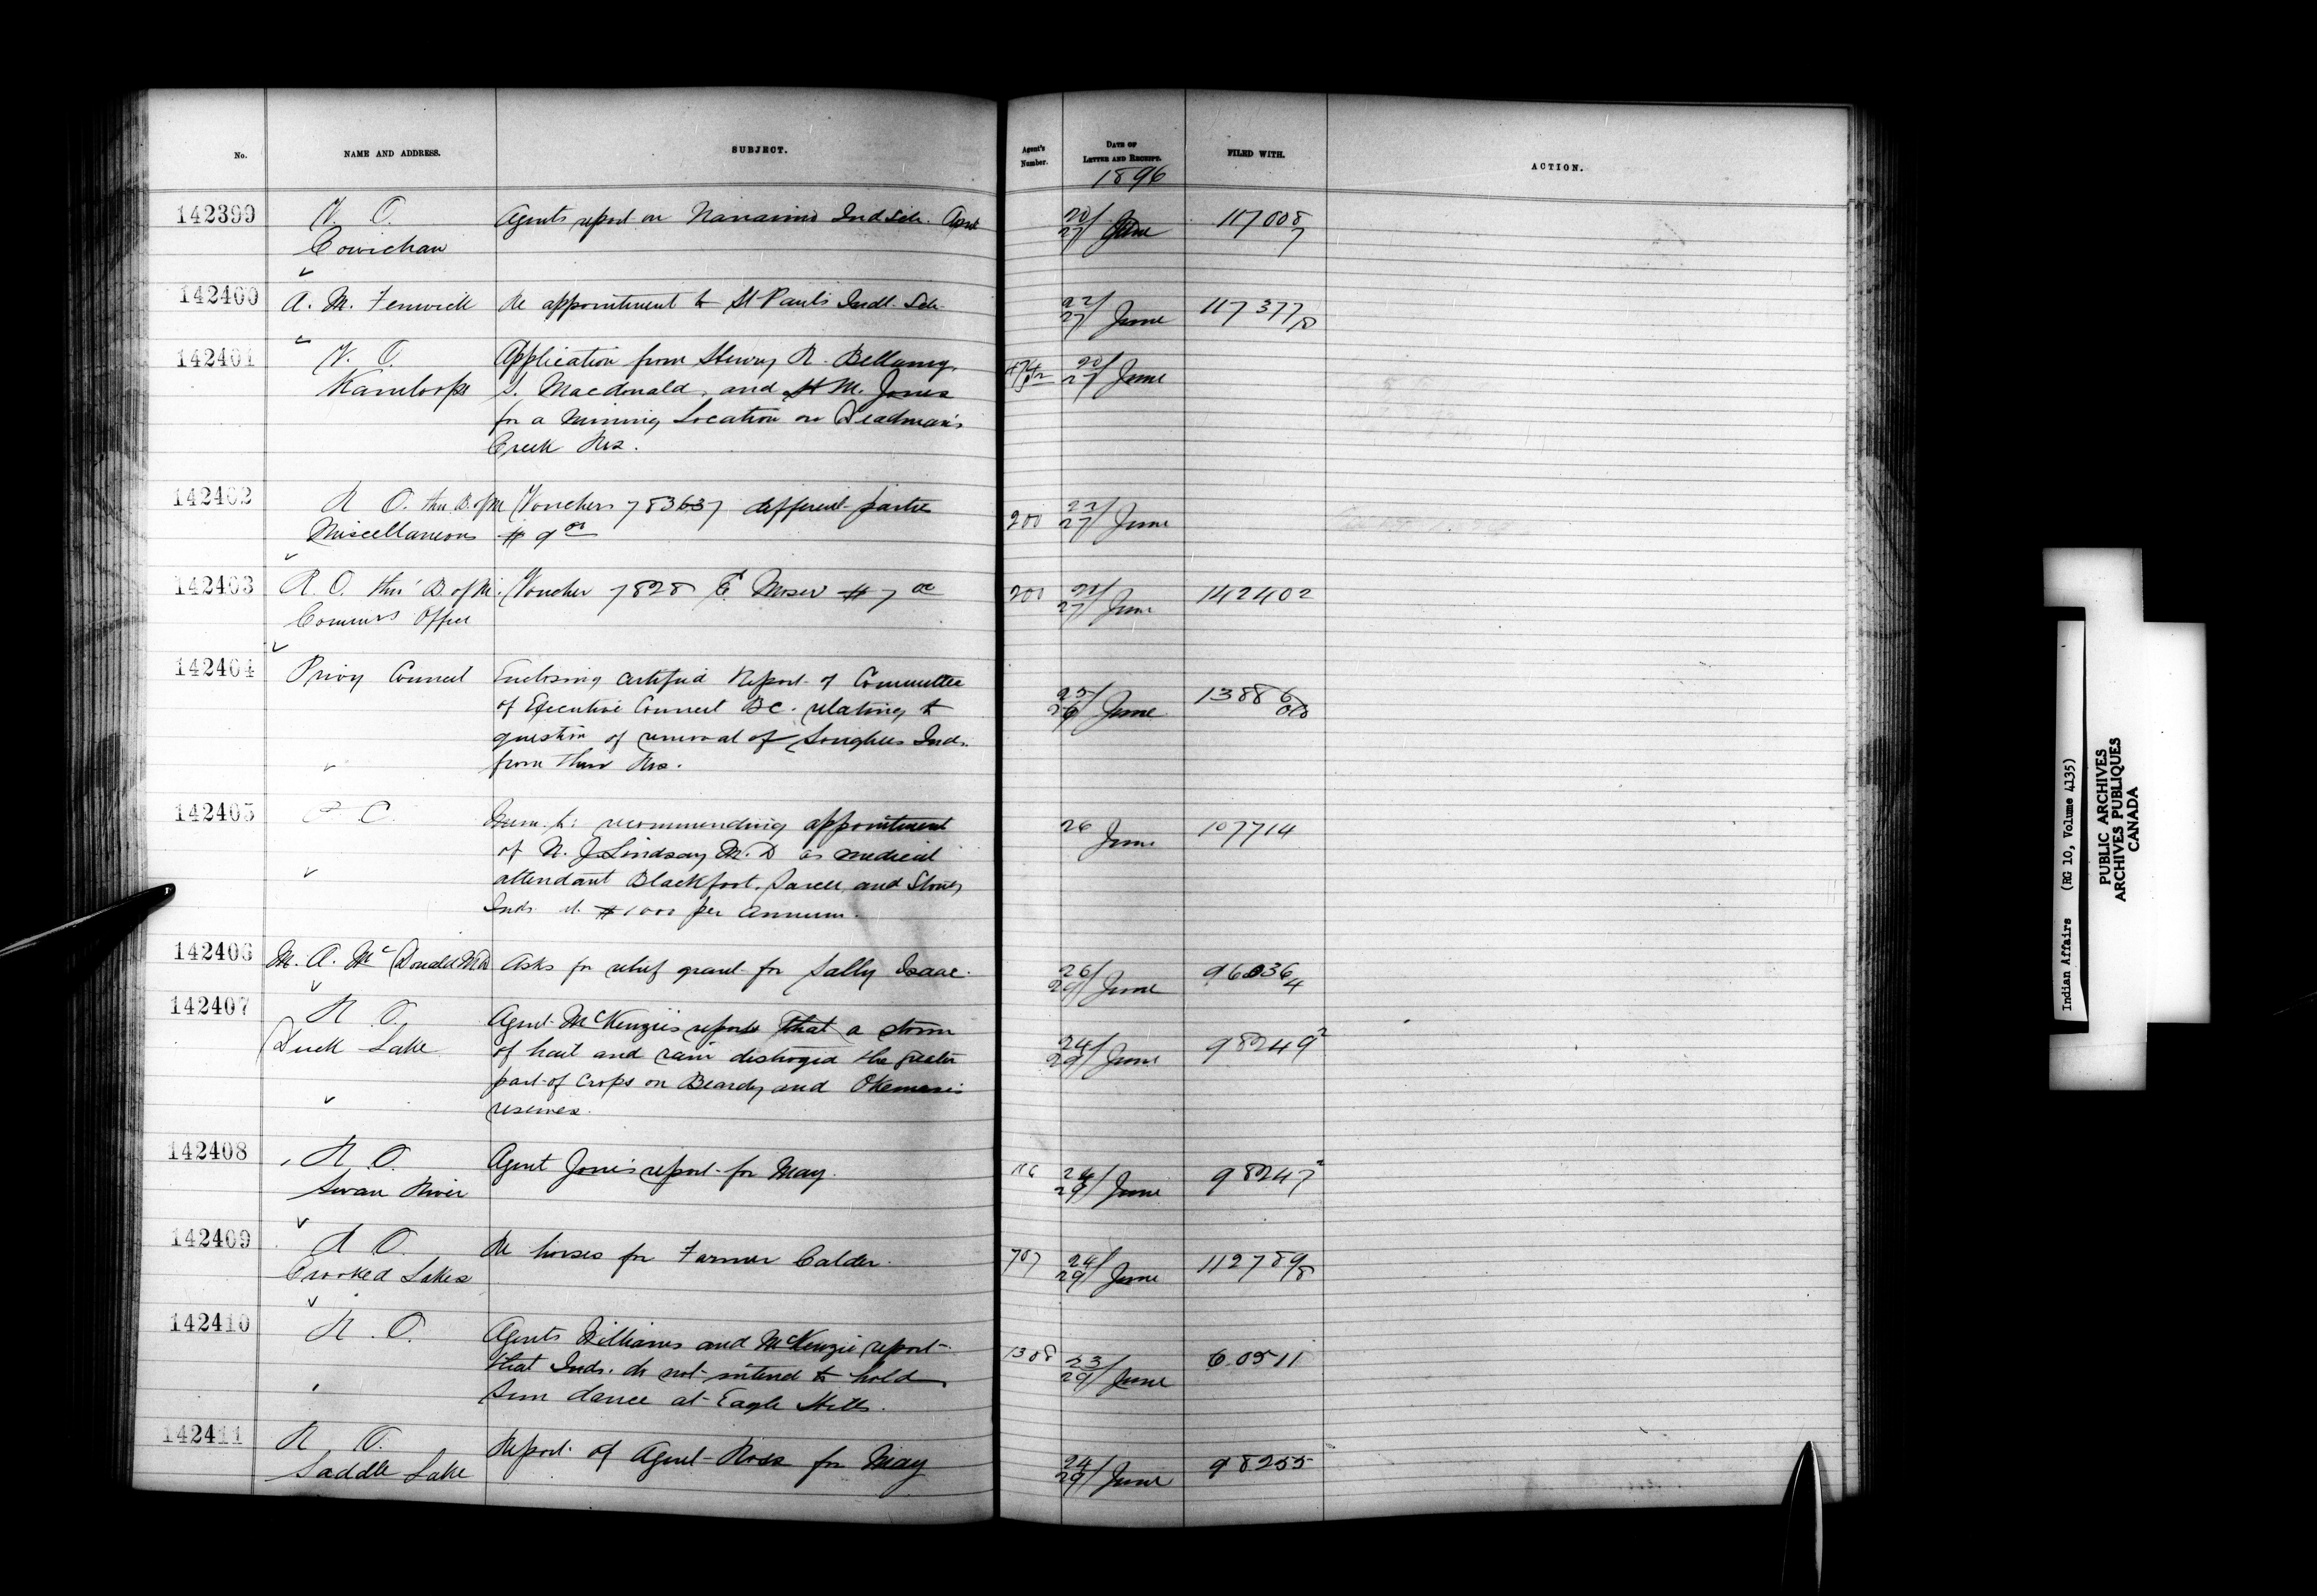 No.
NAME AND ADDRESS.
SUBJECT.
Agent's Number.
DATE OF LETTER AND RECEIPT.
FILED WITH.
ACTION.
1896
142399 V. O. Agents report on Nanaimo Ind Sch. April 20/27 June 117008/7
Cowichan
142400 A. M. Fenwick Re appointment to St Paul's Indl. Sch. 22/27 June 117377/8
142401 V. O. Application from Henry R. Bellamy, 20/27 June
Kamloops S. Macdonald, and H M. Jones
for a Mining Location on Deadman's
Creek Res.
142402 R O. thr B. of M Vouchers 783637 different parties 200 22/27 June
Miscellaneous # 9 00
142403 R. O. thr' B. of M. Voucher 7828 E. Moser # 7 00 200 22/27 June 142402
Commrs Office
142404 Privy Council Enclosing certified Report of Committee 25/26 June 13886
of Executive Council B C. relating to
question of removal of Songhees Inds.
from their Res.
142405 P C. recommending appointment 26 June 107714
of N. J Lindsay M. D as medical
attendant Blackfoot, Sarcee, and Stoney
Inds at # 1000 per annum.
142406 M. A. McDonald MD Asks for relief grant for Sally Isaac. 26/29 June 96036/4
142407 R O. Agent McKenzie's reports that a storm 24/29 June 98249 2
Duck Lake of hail and rain destroyed the greater
part of Crops on Beardy and Okemasis
reserves.
142408 R. O. Agent Jones report for May. 116 24/29 June 98247 2
Swan River
142409 R O. Re horses for Farmer Calder. 707 24/29 June 112789/8
Crooked Lakes
142410 R. O. Agents Williams and McKenzie report 1308 23/29 June 60511
that Inds. do not intend to hold
Sun dance at Eagle Hills.
142411 R O. Report of Agent Ross for May 24/29 June 98255
Saddle Lake
Indian Affairs (RG 10, Volume 4135)
PUBLIC ARCHIVES
ARCHIVES PUBLIQUES
CANADA